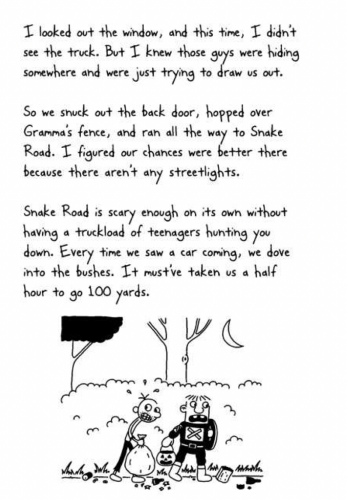 I looked out the window, and this time, I didn't
see the truck. But I knew those guys were hiding
somewhere and were just trying to draw us out.
So we snuck out the back door, hopped over
Gramma's fence, and ran all the way to Snake
Road. I figured our chances were better there
because there aren't any streetlights.
Snake Road is scary enough on its own without
having a truckload of teenagers hunting you
down. Every time we saw a car coming, we dove
into the bushes. It must've taken us a half
hour to go 100 yards.